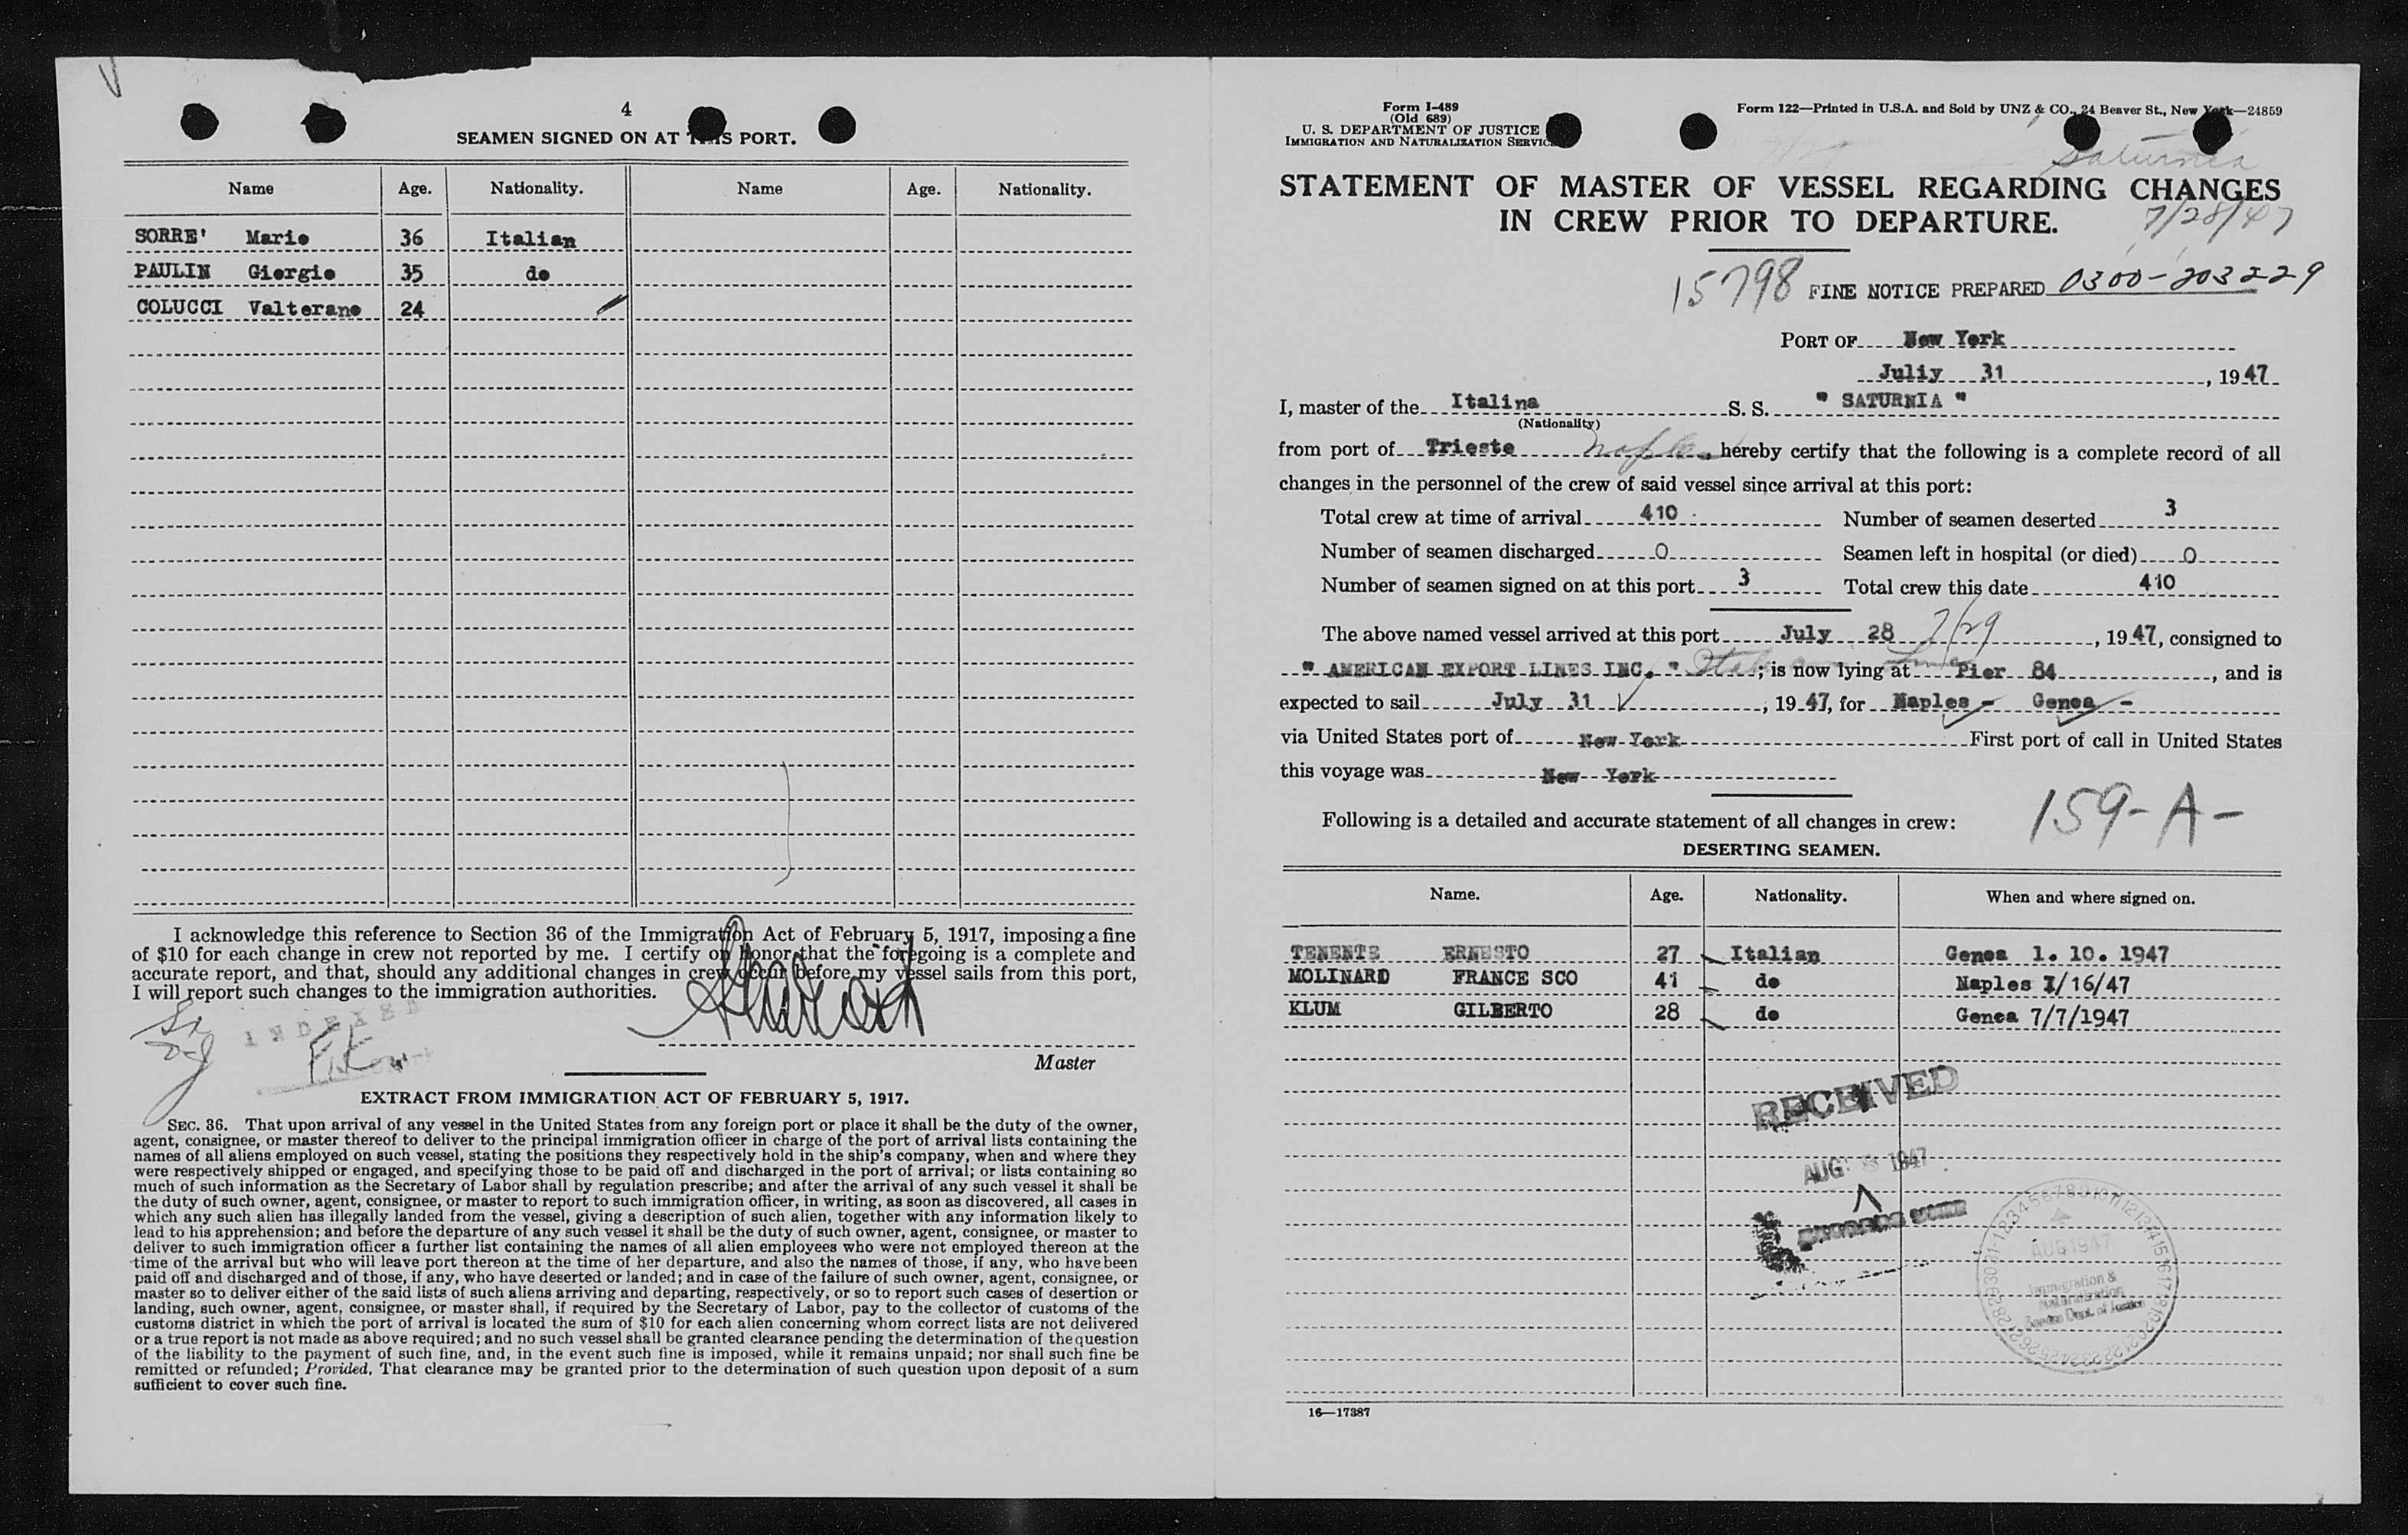 4
SEAMEN SIGNED ON AT THIS PORT.
Name Age. Nationality. Name Age. Nationality.
SORRE' Mario 36 Italian
PAULIN Giorgio 35 do
COLUCCI Valterano 24
I acknowledge this reference to Section 36 of the Immigration Act of February 5, 1917, imposing a fine
of $10 for each change in crew not reported by me. I certify on honor that the foregoing is a complete and
accurate report, and that, should any additional changes in crew occur before my vessel sails from this port,
I will report such changes to the immigration authorities.
INDEXED
Master
EXTRACT FROM IMMIGRATION ACT OF FEBRUARY 5, 1917.
SEC. 36. That upon arrival of any vessel in the United States from any foreign port or place it shall be the duty of the owner,
agent, consignee, or master thereof to deliver to the principal immigration officer in charge of the port of arrival lists containing the
names of all aliens employed on such vessel, stating the positions they respectively hold in the ship's company, when and where they
were respectively shipped or engaged, and specifying those to be paid off and discharged in the port of arrival; or lists containing so
much of such information as the Secretary of Labor shall by regulation prescribe; and after the arrival of any such vessel it shall be
the duty of such owner, agent, consignee, or master to report to such immigration officer, in writing, as soon as discovered, all cases in
which any such alien has illegally landed from the vessel, giving a description of such alien, together with any information likely to
lead to his apprehension; and before the departure of any such vessel it shall be the duty of such owner, agent, consignee, or master to
deliver to such immigration officer a further list containing the names of all alien employees who were not employed thereon at the
time of the arrival but who will leave port thereon at the time of her departure, and also the names of those, if any, who have been
paid off and discharged and of those, if any, who have deserted or landed; and in case of the failure of such owner, agent, consignee, or
master so to deliver either of the said lists of such aliens arriving and departing, respectively, or so to report such cases of desertion or
landing, such owner, agent, consignee, or master shall, if required by the Secretary of Labor, pay to the collector of customs of the
customs district in which the port of arrival is located the sum of $10 for each alien concerning whom correct lists are not delivered
or a true report is not made as above required; and no such vessel shall be granted clearance pending the determination of the question
of the liability to the payment of such fine, and, in the event such fine is imposed, while it remains unpaid; nor shall such fine be
remitted or refunded; Provided, That clearance may be granted prior to the determination of such question upon deposit of a sum
sufficient to cover such fine.
Form I-489
(Old 689)
U. S. DEPARTMENT OF JUSTICE
IMMIGRATION AND NATURALIZATION SERVICE
Form 122—Printed in U.S.A. and Sold by UNZ & CO., 24 Beaver St., New York—24859
Saturnia
STATEMENT OF MASTER OF VESSEL REGARDING CHANGES
IN CREW PRIOR TO DEPARTURE.
7/28/47
15798 FINE NOTICE PREPARED 0300-203229
PORT OF New York
Juliy 31, 1947
I, master of the Italina S. S. " SATURNIA "
(Nationality)
from port of Trieste Naples, hereby certify that the following is a complete record of all
changes in the personnel of the crew of said vessel since arrival at this port:
Total crew at time of arrival 410 Number of seamen deserted 3
Number of seamen discharged 0 Seamen left in hospital (or died) 0
Number of seamen signed on at this port 3 Total crew this date 410
The above named vessel arrived at this port July 28 7/29, 1947, consigned to
" AMERICAN EXPORT LINES INC. " ; is now lying at Pier 84, and is
expected to sail July 31, 1947, for Naples - Genoa -
via United States port of New York First port of call in United States
this voyage was New York
159-A-
Following is a detailed and accurate statement of all changes in crew:
DESERTING SEAMEN.
Name. Age. Nationality. When and where signed on.
TENENTE ERNESTO 27 Italian Genoa 1. 10. 1947
MOLINARD FRANCE SCO 41 do Naples 1/16/47
KLUM GILBERTO 28 do Genoa 7/7/1947
RECEIVED
AUG 1947
AUG 1947
Immigration &
Naturalization
Service Dept. of Justice
16—17387